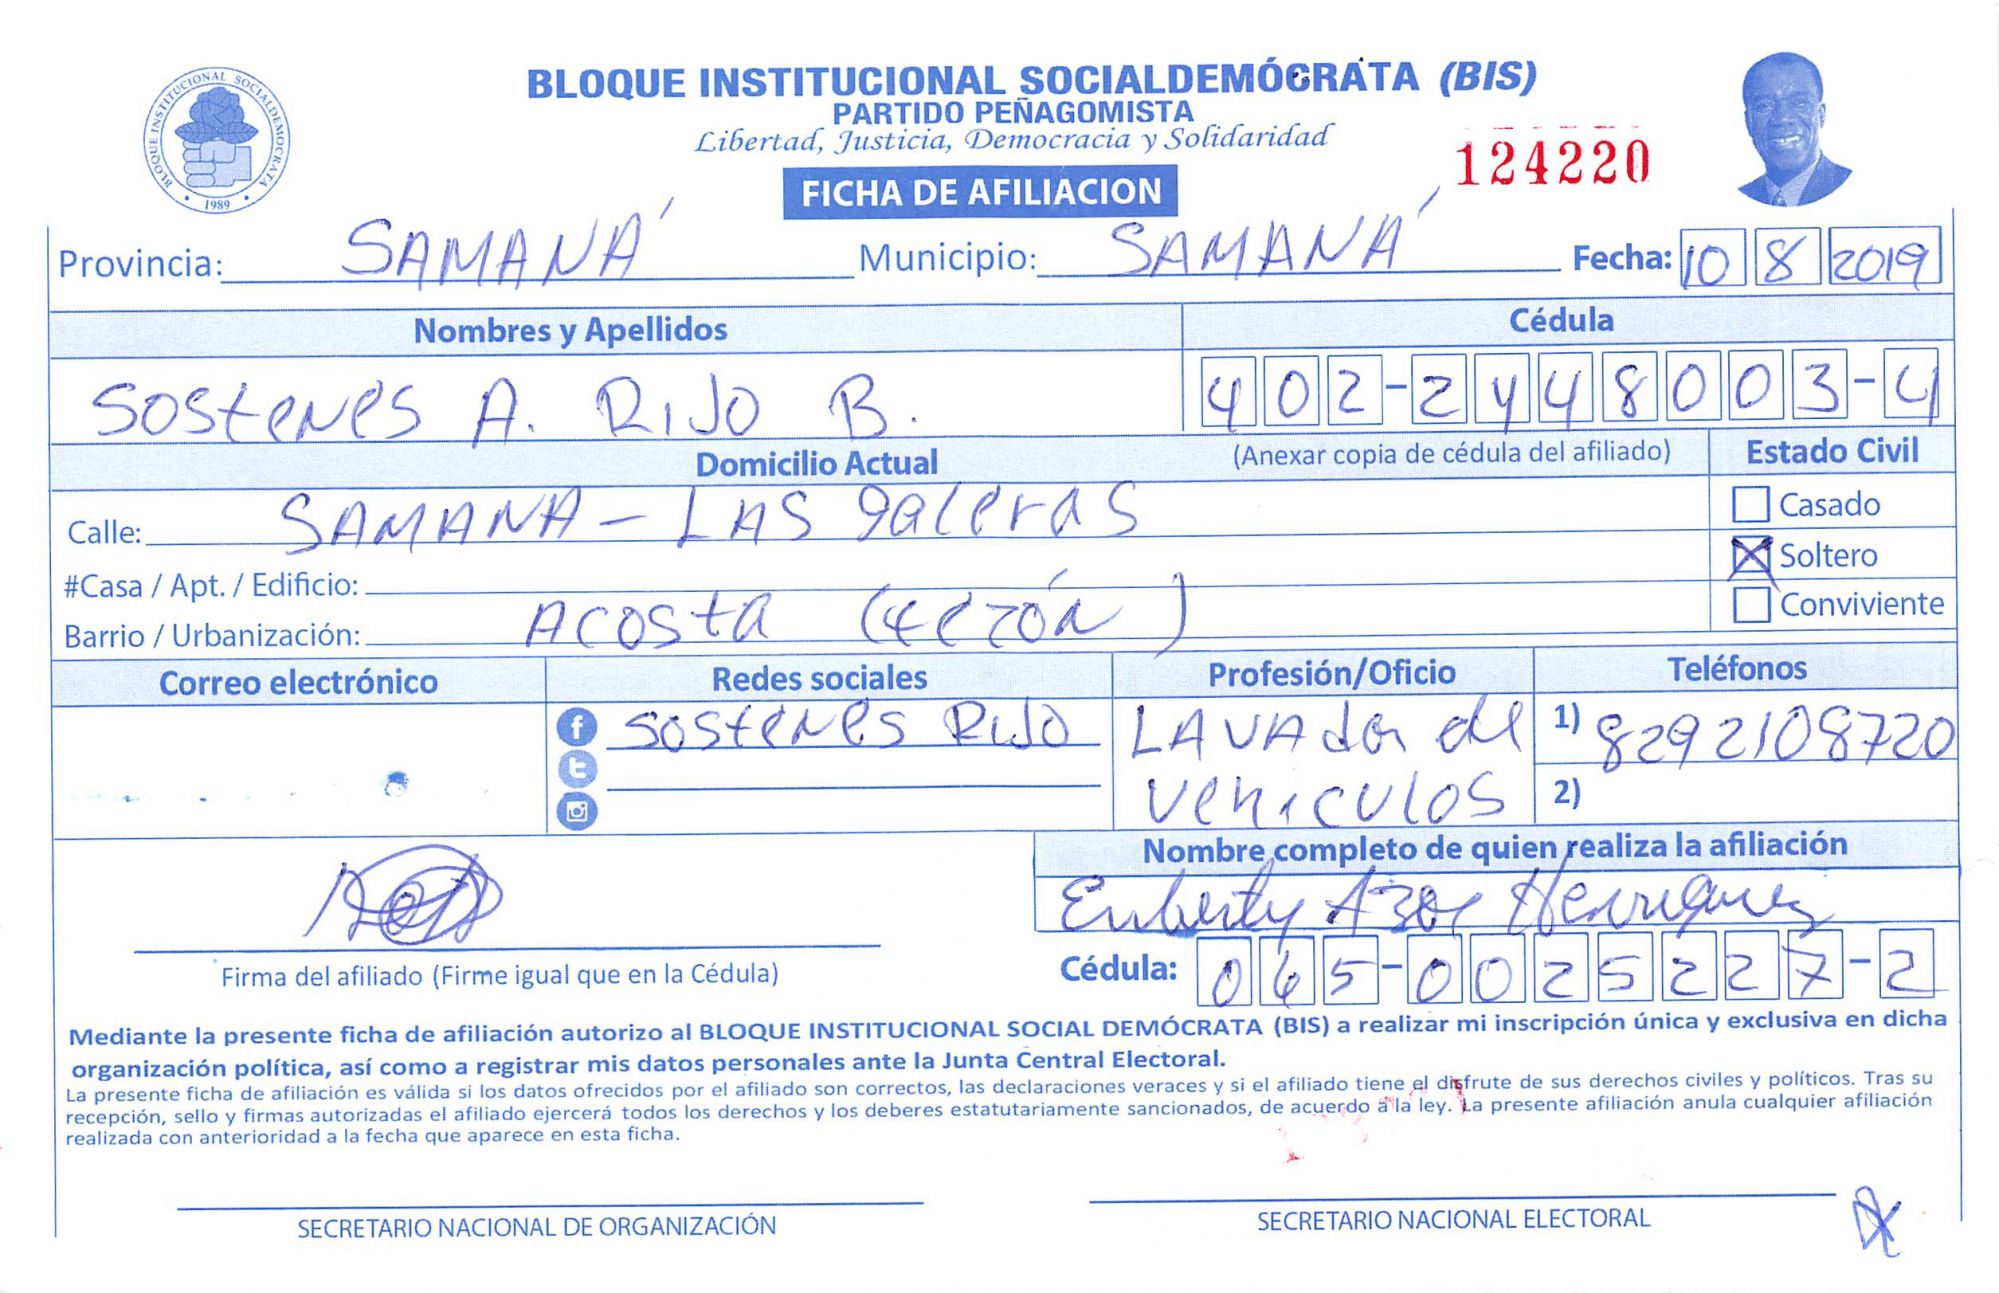 BLOQUE INSTITUCIONAL SOCIALDEMOCRATA
1989
BLOQUE INSTITUCIONAL SOCIALDEMÓCRATA (BIS)
PARTIDO PEÑAGOMISTA
Libertad, Justicia, Democracia y Solidaridad
124220
FICHA DE AFILIACION
Provincia: SAMANÁ Municipio: SAMANÁ Fecha: 10 8 2019
Nombres y Apellidos Cédula
Sostenes A. RIJO B. 402-2448003-4
Domicilio Actual (Anexar copia de cédula del afiliado) Estado Civil
Calle: SAMANA - LAS galeras Casado
#Casa / Apt. / Edificio: Soltero
Barrio / Urbanización: Acosta Conviviente
Correo electrónico Redes sociales Profesión/Oficio Teléfonos
Sostenes RIJO LAVAdor de 1) 8292108720
vehiculos 2)
Nombre completo de quien realiza la afiliación
Henriquez
Firma del afiliado (Firme igual que en la Cédula) Cédula: 065-0025227-2
Mediante la presente ficha de afiliación autorizo al BLOQUE INSTITUCIONAL SOCIAL DEMÓCRATA (BIS) a realizar mi inscripción única y exclusiva en dicha
organización política, así como a registrar mis datos personales ante la Junta Central Electoral.
La presente ficha de afiliación es válida si los datos ofrecidos por el afiliado son correctos, las declaraciones veraces y si el afiliado tiene el disfrute de sus derechos civiles y políticos. Tras su
recepción, sello y firmas autorizadas el afiliado ejercerá todos los derechos y los deberes estatutariamente sancionados, de acuerdo a la ley. La presente afiliación anula cualquier afiliación
realizada con anterioridad a la fecha que aparece en esta ficha.
SECRETARIO NACIONAL DE ORGANIZACIÓN SECRETARIO NACIONAL ELECTORAL